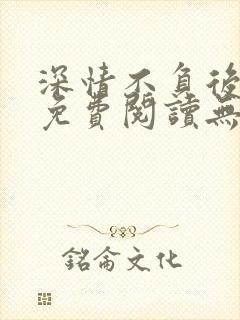 深情不負後
免費閱讀無
銘侖文化